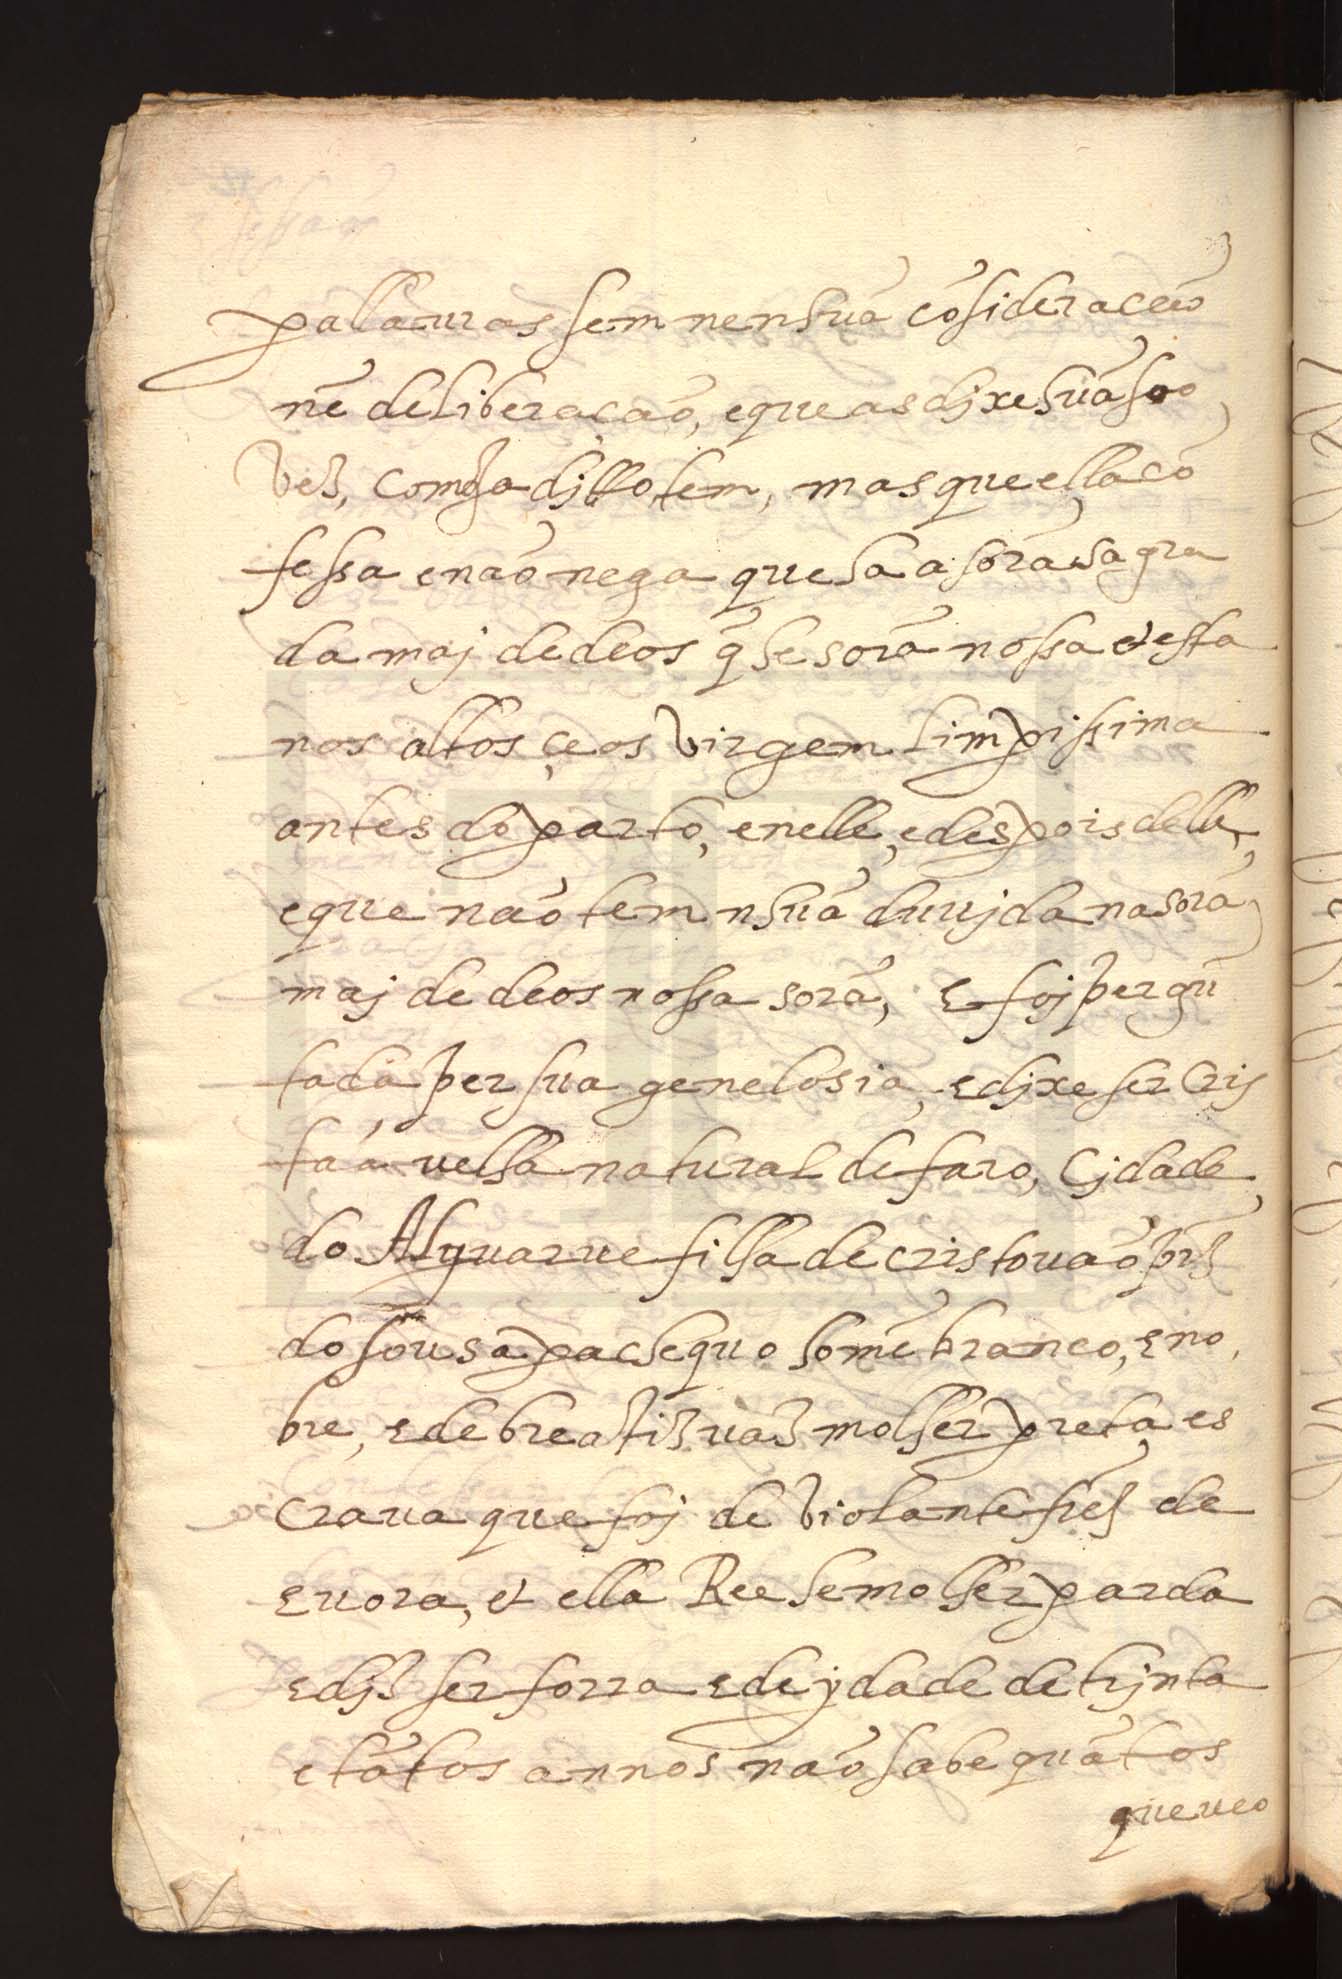 pallauras sem nenhuã cõsideracão
nẽ deliberação, e que as dixe huã soo
vez, como ja ditto tem, mas que ella cõ
fessa e não nega que ha a sorã sagra
da maj de deos q̃ he sorã nossa et esta
nos altos çeos Virgem limpissima
antes do parto, e nelle, e despois delle,
e que não tem nhuã duujda na sorã
maj de deos nossa sorã, E foj pergũ
tada per sua genelosia, E dixe ser Cris
taã uelha natural de faro, Cjdade
do Alguarue filha de cristouão
do sousa pachequo homẽ branco, E no
bre, E de breatiz uaz molher preta, es
craua que foj de Violante de
Euora, et ella Ree he molher parda
E diz ser forra E de ydade de trjnta
e tãtos annos não sabe quãtos
que ueo